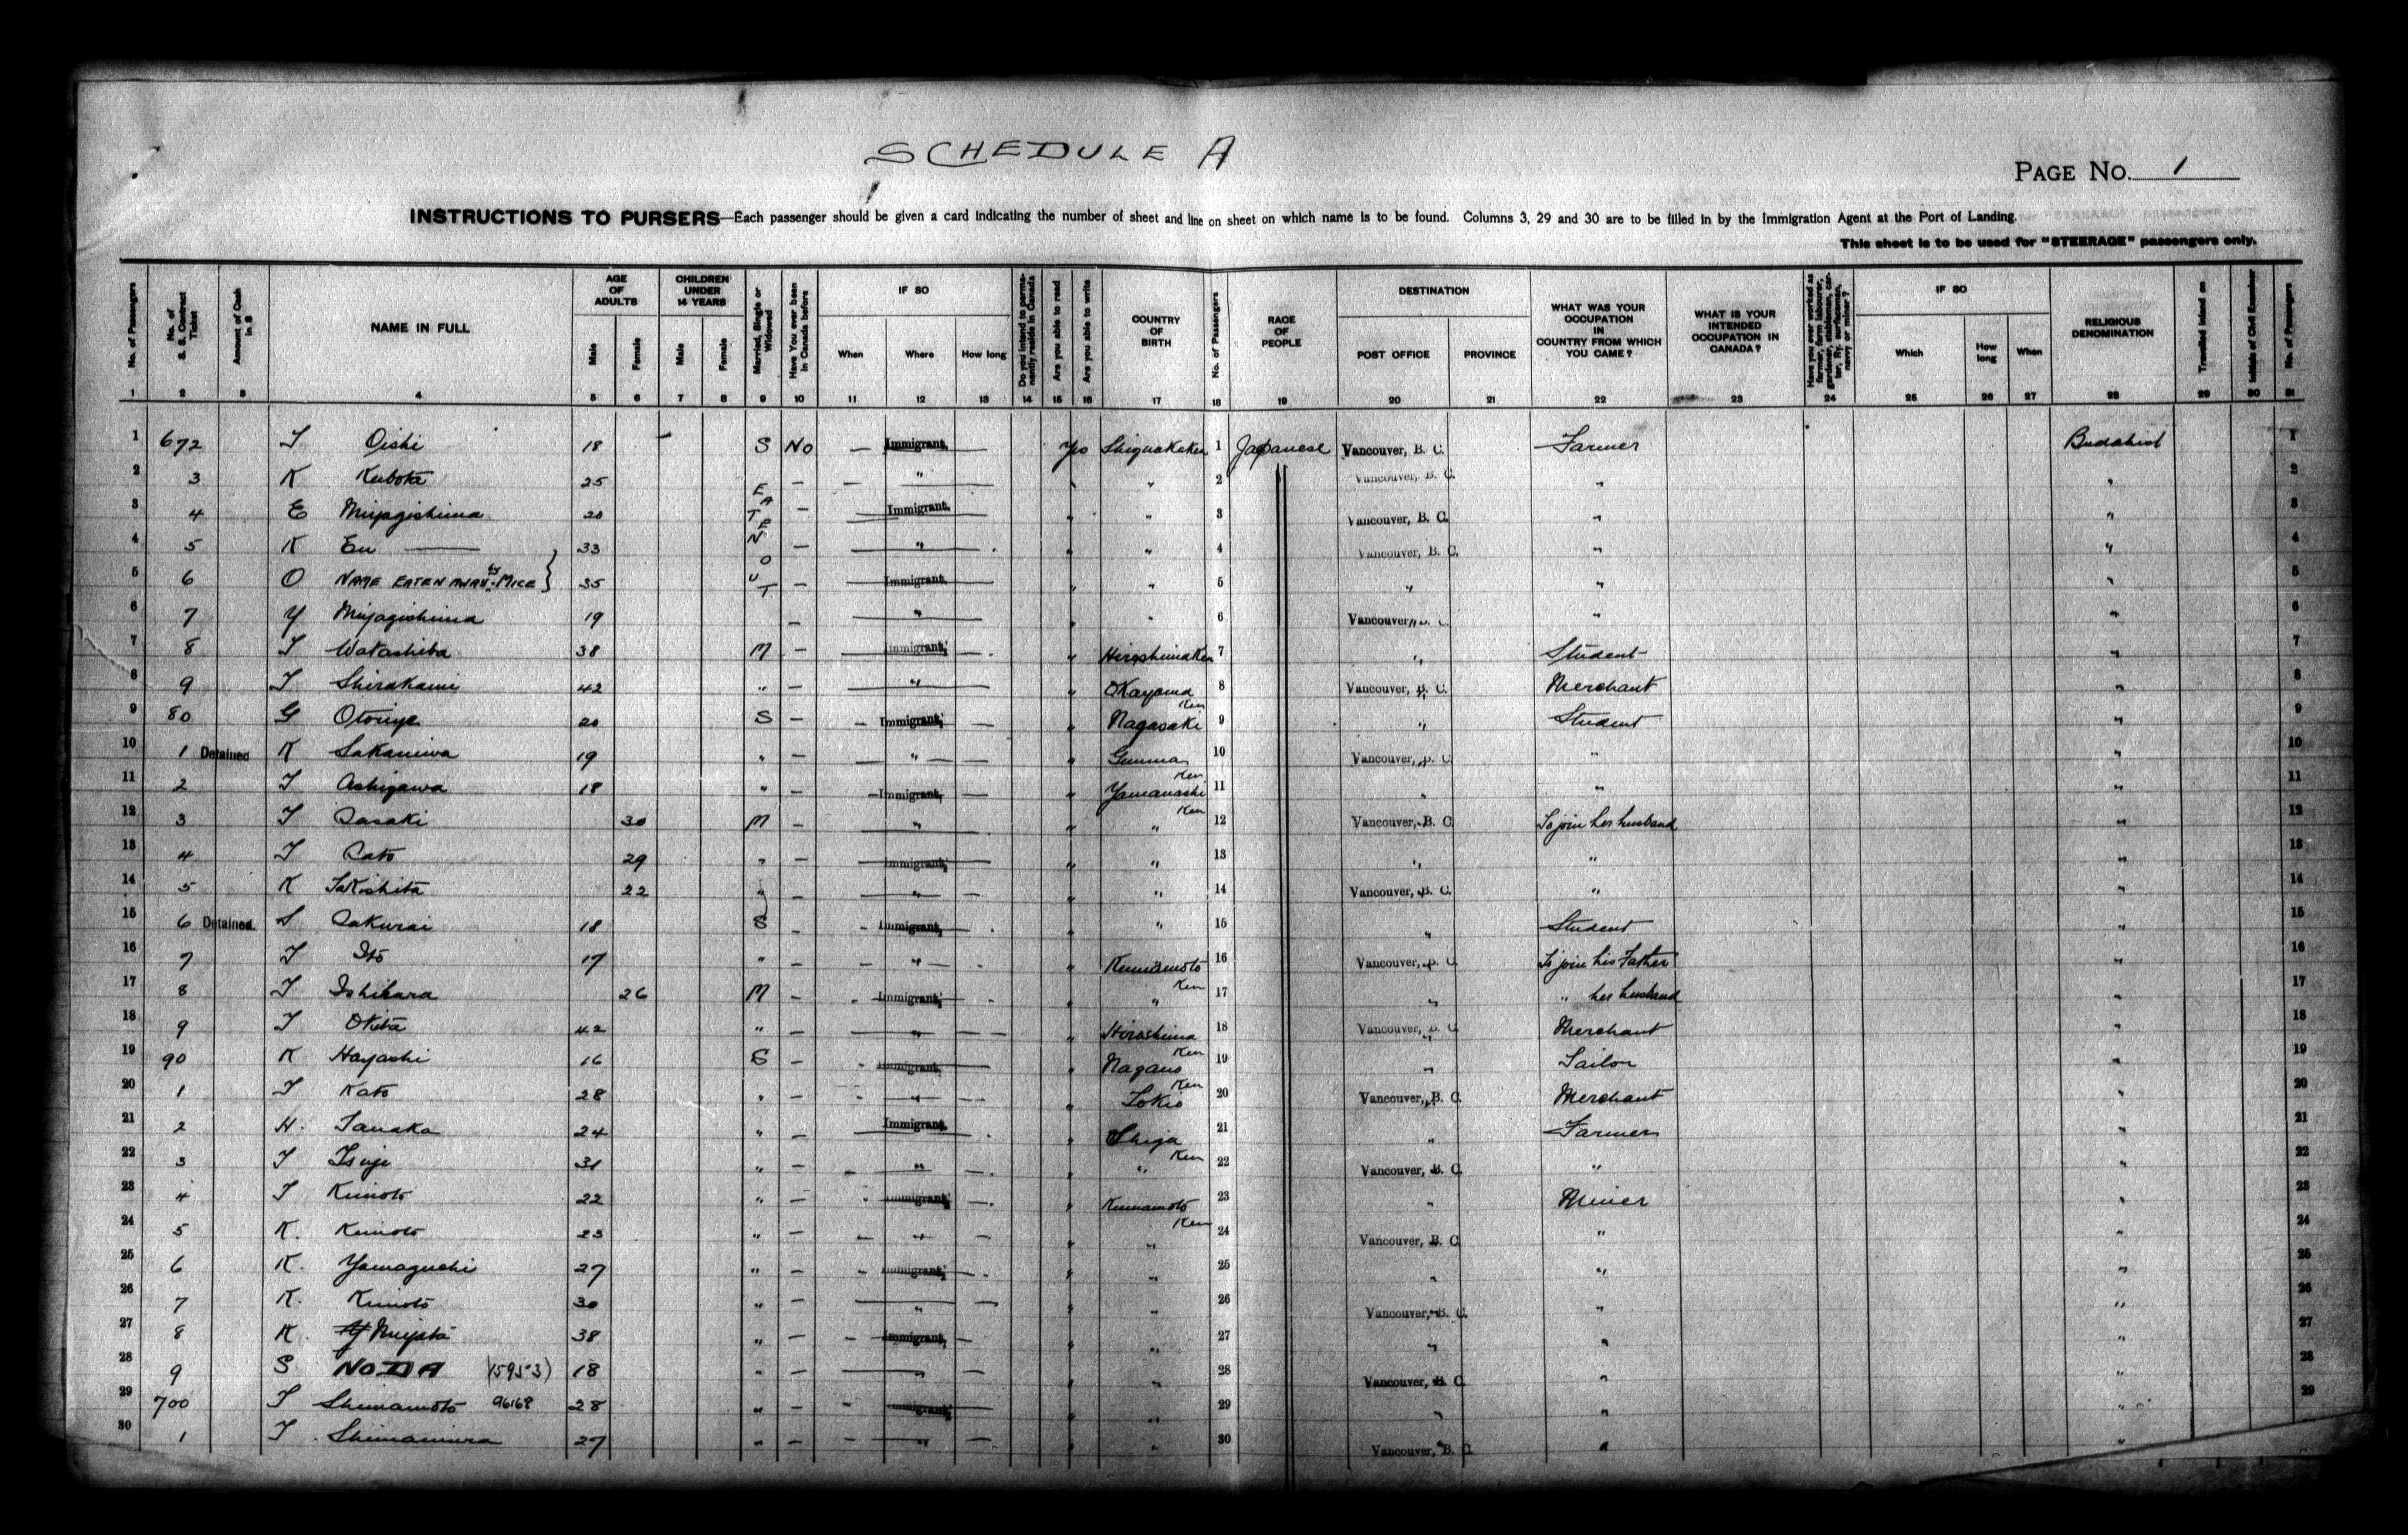 SCHEDULE A
PAGE NO. 1
INSTRUCTIONS TO PURSERS—Each passenger should be given a card indicating the number of sheet and line on sheet on which name is to be found. Columns 3, 29 and 30 are to be filled in by the Immigration Agent at the Port of Landing.
This sheet is to be used for "STEERAGE" passengers only.
No. of Passengers No. of S. S. Contract Ticket Amount of Cash in $ NAME IN FULL AGE OF ADULTS Male Female CHILDREN UNDER 14 YEARS Male Female Married, Single or Widowed Have You ever been in Canada before IF SO When Where How long Do you intend to permanently reside in Canada Are you able to read Are you able to write COUNTRY OF BIRTH No. of Passengers RACE OF PEOPLE DESTINATION POST OFFICE PROVINCE WHAT WAS YOUR OCCUPATION IN COUNTRY FROM WHICH YOU CAME? WHAT IS YOUR INTENDED OCCUPATION IN CANADA? Have you ever worked as farmer, farm labourer, gardener, stableman, carter, Ry. surfaceman, navvy or miner? IF SO Which How long When RELIGIOUS DENOMINATION Travelled Inland on Initials of Civil Examiner No. of Passengers
1 2 3 4 5 6 7 8 9 10 11 12 13 14 15 16 17 18 19 20 21 22 23 24 25 26 27 28 29 30 31
1 672 T Oishi 18 S No — Immigrant. — Yes 1 Japanese Vancouver, B. C. Farmer Buddhist 1
2 3 K Kubota 25 — — " " " 2 Vancouver, B. C. " " 2
3 4 E Miyagishima 20 — Immigrant. " " 3 Vancouver, B. C. " " 3
4 5 K Eu — 33 — " " " 4 Vancouver, B. C. " " 4
5 6 O NAME EATEN AWAY by MICE 35 — Immigrant. " " 5 " " " 5
EATEN OUT
6 7 Y Miyagishima 19 — " " " 6 Vancouver, B. C. " " 6
7 8 T 38 M — Immigrant, " Hiroshima Ken 7 " Student " 7
8 9 T Shirakami 42 " — " " Okayama Ken 8 Vancouver, B. C. Merchant " 8
9 80 G 20 S — Immigrant, " Nagasaki 9 " Student " 9
10 1 Detained K Sakaniwa 19 " — " " Gunma Ken 10 Vancouver, B. C. " " 10
11 2 T Ashizawa 18 " — Immigrant, " Yamanashi Ken 11 " " " 11
12 3 T Sasaki 30 M — " " " 12 Vancouver, B. C. To join her husband " 12
13 4 T Sato 29 " — Immigrant, " " 13 " " " 13
14 5 K Takishita 22 " — " " " 14 Vancouver, B. C. " " 14
15 6 Detained. S Sakurai 18 S — Immigrant, " " 15 " Student " 15
16 7 T Ito 17 " — " " Kumamoto Ken 16 Vancouver, B. C. To join his Father " 16
17 8 T Ishihara 26 M — Immigrant, " " 17 " " her husband " 17
18 9 T Okita 42 " — " " Hiroshima Ken 18 Vancouver, B. C. Merchant " 18
19 90 K Hayashi 16 S — Immigrant, " Nagano Ken 19 " Tailor " 19
20 1 T Kato 28 " — " " Tokio 20 Vancouver, B. C. Merchant " 20
21 2 H. Tanaka 24 " — Immigrant. " Shiga Ken 21 " Farmer " 21
22 3 T Tsuji 31 " — " " " 22 Vancouver, B. C. " " 22
23 4 T Kimoto 22 " — Immigrant, " Kumamoto Ken 23 " Miner " 23
24 5 K. Kimoto 23 " — " " " 24 Vancouver, B. C. " " 24
25 6 K. Yamaguchi 27 " — Immigrant, " " 25 " " " 25
26 7 K. Kimoto 30 " — " " " 26 Vancouver, B. C. " " 26
27 8 K. Miyata 38 " — Immigrant, " " 27 " " " 27
28 9 S NODA 15953) 18 " — " " " 28 Vancouver, B. C. " " 28
29 700 T Shimamoto 96168 28 " — Immigrant, " " 29 " " " 29
30 1 T. Shimamura 27 " — " " " 30 Vancouver, B. C. " "